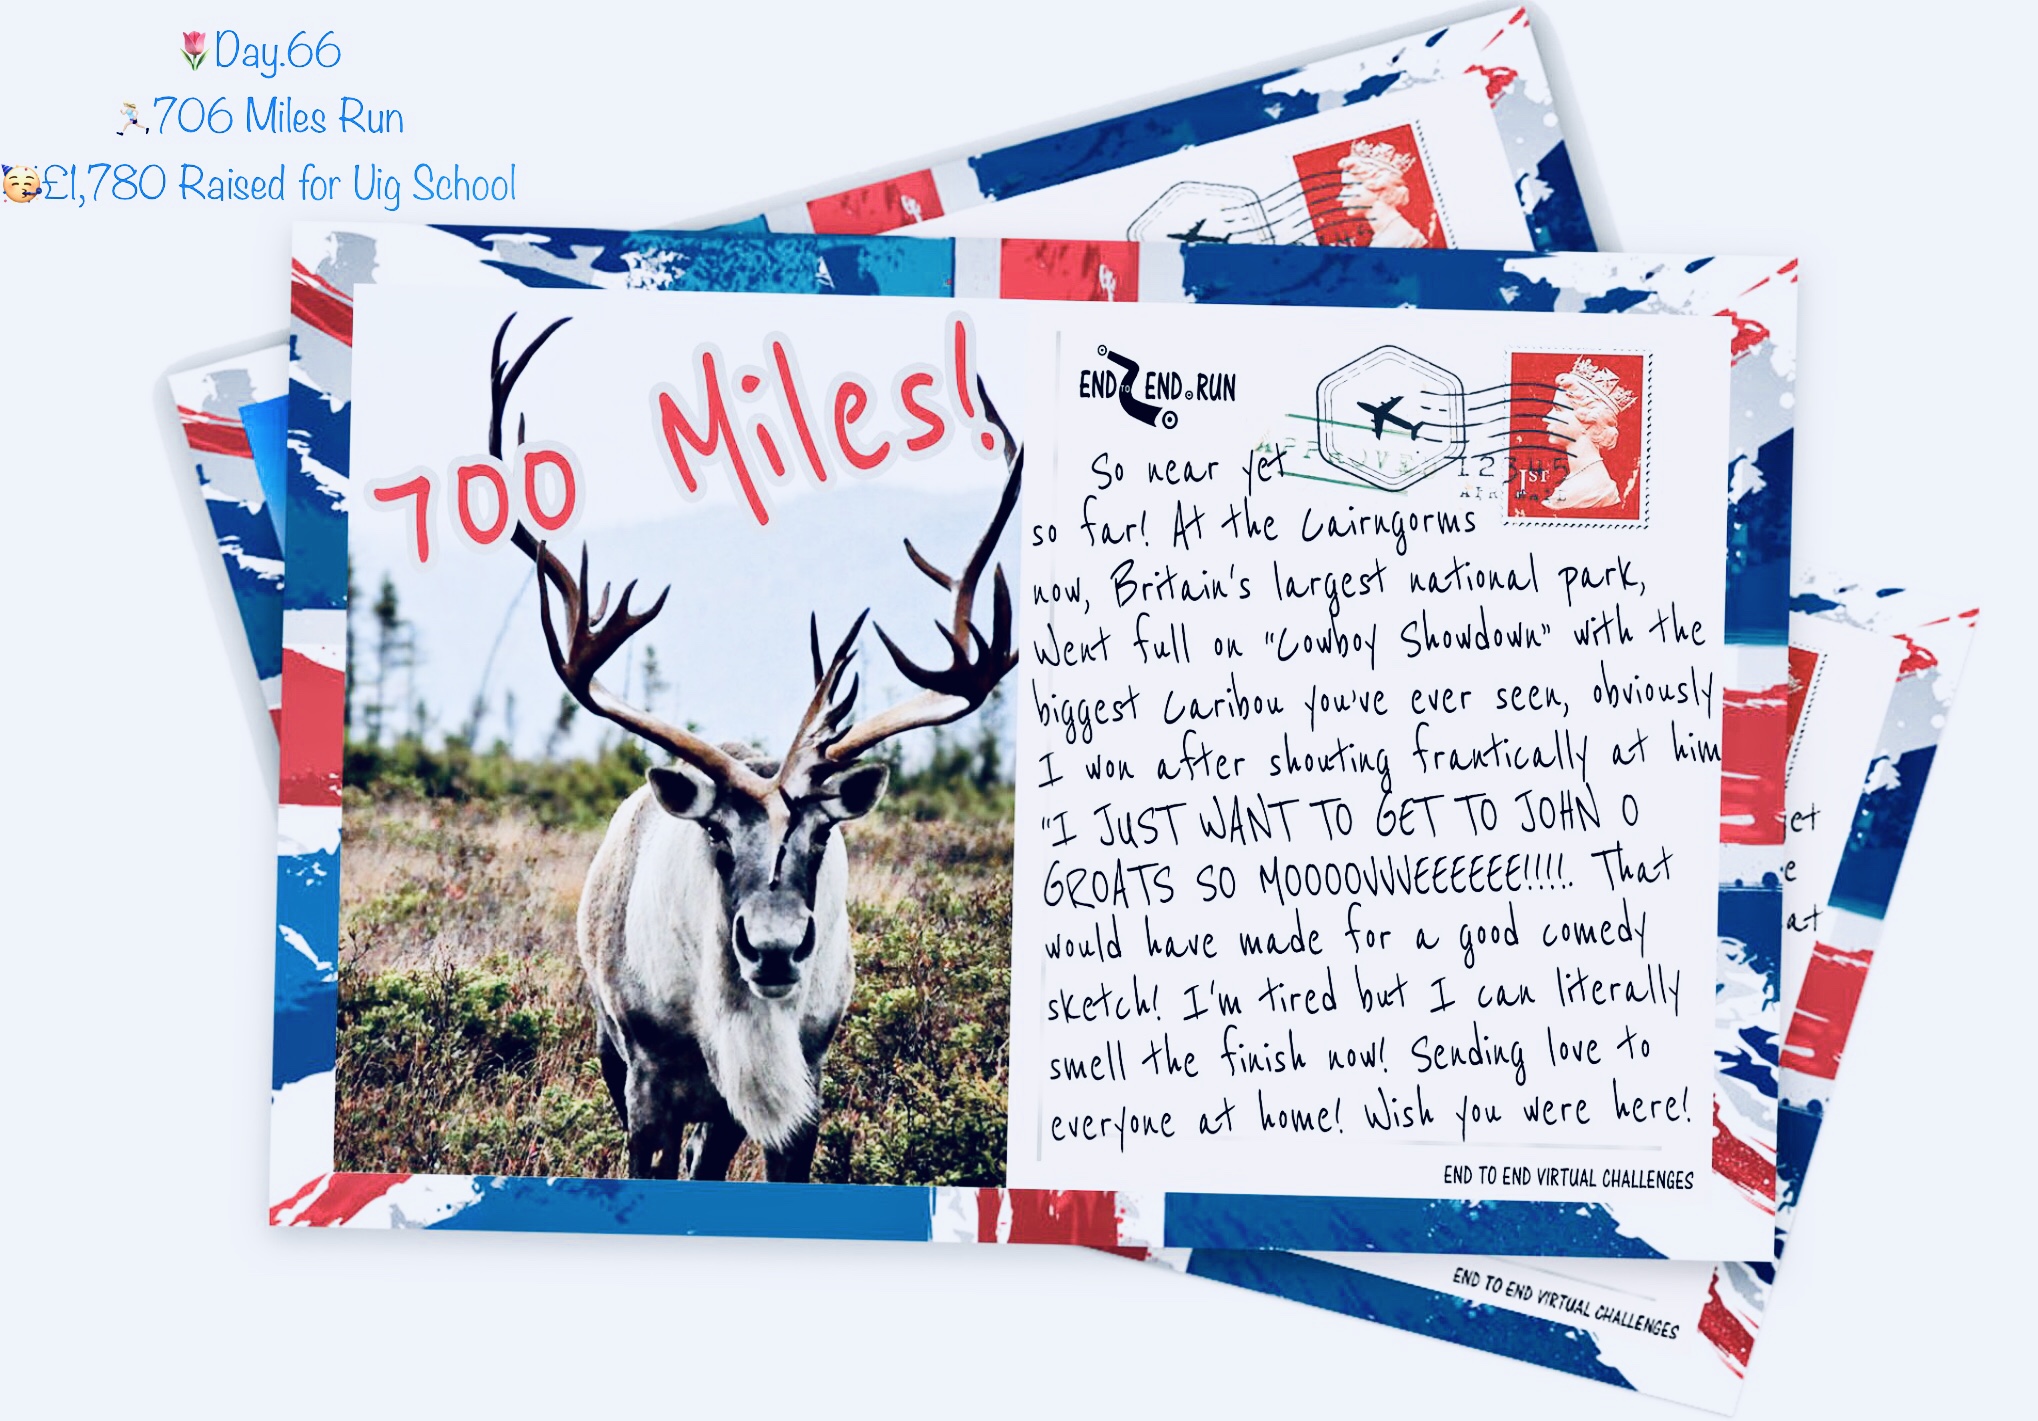 🌷Day.66
🏃🏼‍♀️706 Miles Run
🥳£1,780 Raised for Uig School
700 Miles!
END TO END.RUN
APPROVED
12345
AIR MAIL
1ST
So near yet
so far! At the Cairngorms
now, Britain's largest national park,
Went full on "Cowboy Showdown" with the
biggest Caribou you've ever seen, obviously
I won after shouting frantically at him
"I JUST WANT TO GET TO JOHN O
GROATS SO MOOOOVVVEEEEEE!!!!. That
would have made for a good comedy
sketch! I'm tired but I can literally
smell the finish now! Sending love to
everyone at home! Wish you were here!
END TO END VIRTUAL CHALLENGES
et
e
at
END TO END VIRTUAL CHALLENGES